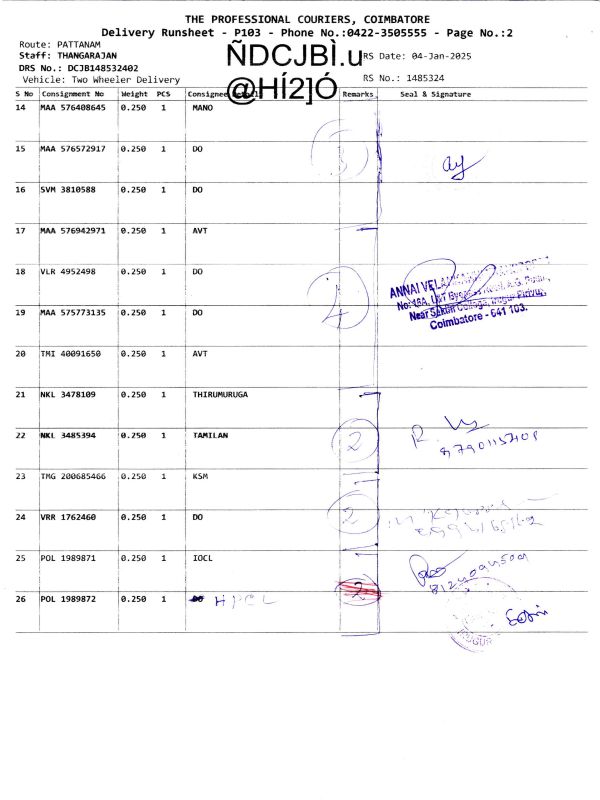 THE PROFESSIONAL COURIERS, COIMBATORE
Delivery Runsheet - P103 - Phone No.:0422-3505555 - Page No.:2
Route: PATTANAM
Staff: THANGARAJAN
ÑDCJBÌ.u
RS Date: 04-Jan-2025
DRS No.: DCJB148532402
Vehicle: Two Wheeler Delivery
@HÍ2]Ó
RS No.: 1485324
S No Consignment No Weight PCS Consignee Remarks Seal & Signature
14 MAA 576408645 0.250 1 MANO
15 MAA 576572917 0.250 1 DO
3
16 SVM 3810588 0.250 1 DO
17 MAA 576942971 0.250 1 AVT
18 VLR 4952498 0.250 1 DO
4
ANNAI
Coimbatore - 641 103.
19 MAA 575773135 0.250 1 DO
20 TMI 40091650 0.250 1 AVT
21 NKL 3478109 0.250 1 THIRUMURUGA
22 NKL 3485394 0.250 1 TAMILAN
2
23 TMG 200685466 0.250 1 KSM
24 VRR 1762460 0.250 1 DO
2
25 POL 1989871 0.250 1 IOCL
26 POL 1989872 0.250 1 DO HPCL
2